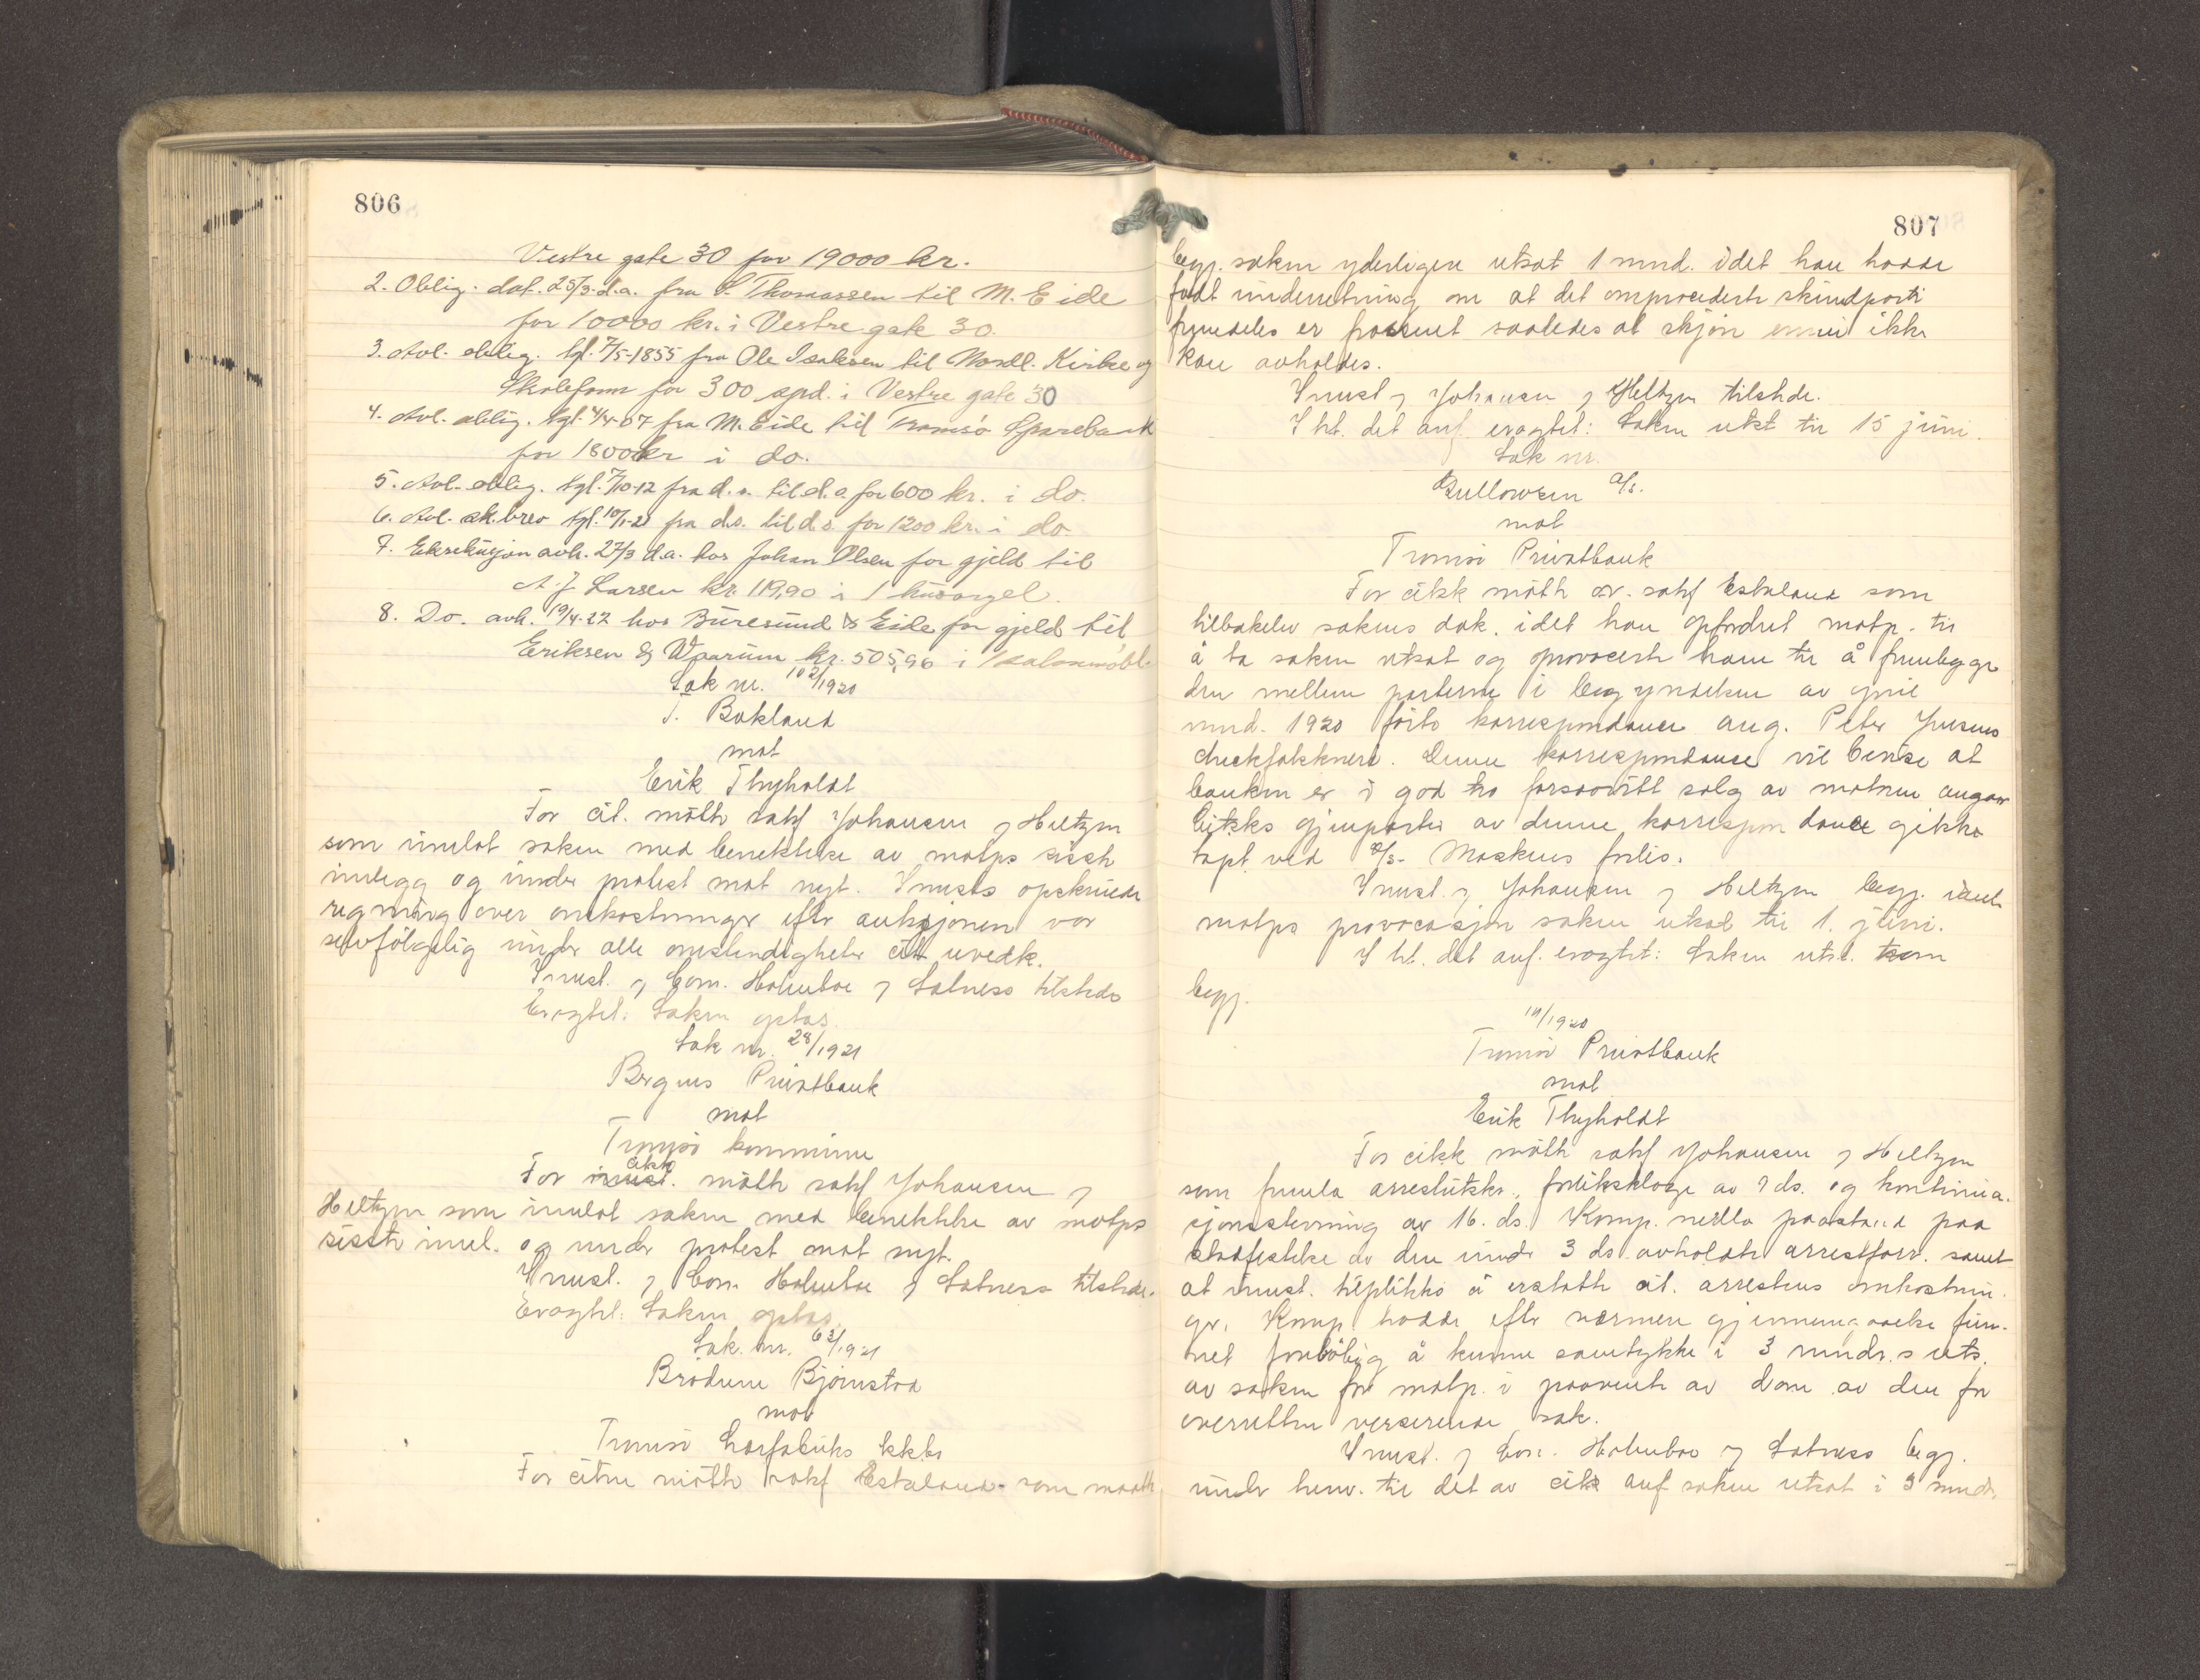 806
Vestre gate 30 for 19000 kr.
2. Oblig. dat. 25/3 d.a. fra S. Thomassen til M. Eide
for 10000 kr. i Vestre gate 30.
3. Avl. oblig. tgl. 7/5-1855 fra Ole Isaksen til Nordl. Kirke og
Skolefonn for 300 spd. i Vestre gate 30
4. Avl. oblig. tgl. 4/4-07 fra M. Eide til Tromsø Sparebank
for 1800 kr i do.
5. Avl. oblig. tgl. 7/10-12 fra d.s. til d.s. for 600 kr. i do.
6. Avl. sk.brev tgl. 10/1-21 fra d.s. til d.s. for 1200 kr. i do.
7. Eksekusjon avh. 27/3 d.a. hos Johan Olsen for gjeld til
A. J. Larsen kr. 119,90 i 1 husorgel.
8. Do. avh. 19/4-22 hos Buresund & Eide for gjeld til
Eriksen & Wparum kr. 505,96 i 1 salonmøbl.
Sak nr. 102/1920
T. Bokland
mot
Erik Thyholdt
For cit. møtte sakf Johansen & Heltzen
som innlot saken med benektelse av motps siste
innlegg og under protest mot nyt. Innsts opskrudde
regning over omkostninger efter auksjonen var
selvfølgelig under alle omstendigheter cit uvedk.
Innst. & Com. Holmboe & Satness tilstede
Eragtet: Saken optas.
Sak nr. 28/1921
Bergens Privatbank
mot
Tromsø kommune
For citk møtte sakf Johansen &
Heltzen som innlot saken med benektelse av motps
siste innl. og under protest mot nyt.
Innst. & Com. Holmboe & Satness tilstede.
Eragtet: Saken optas.
Sak. nr. 63/1921
Brødrene Bjørnstad
mot
Tromsø Lærfabriks kkbo
For citne møtte sakf Eskeland som maatte
807
begj. saken yderligere utsat 1 mnd. idet han hadde
faat underretning om at det omprocederte skindparti
fremdeles er frossent saaledes at skjøn ennu ikke
kan avholdes.
Innst & Johansen & Heltzen tilstede.
I ht. det anf. eragtet: Saken utst til 15 juni.
Sak nr.
Gullowsen A/s.
mot
Tromsø Privatbank
For citkk møtte or. sakf Eskeland som
tilbakelev sakens dok. idet han opfordret motp. til
å ta saken utsat og provoserte ham til å fremlegge
den mellem parterne i begyndelsen av juni
mnd. 1920 førte korrespondance ang. Peter Jensens
checkfalskneri. Denne korrespondanse vil bevise at
banken er i god tro forsaavitt salg av matrene angaar
Citkks gjenparter av denne korrespondance gikk
tapt ved D/s. Moskens forlis.
Innst. & Johansen & Heltzen begj. under
motps provocasjon saken utsat til 1. juni.
I ht. det anf. eragtet: Saken utst. som
begj.
19/1920
Tromsø Privatbank
mot
Erik Thyholdt
For citkk møtte sakf Johansen & Heltzen
som freml. arrestutskr., forliksklage av 9 ds. og kontinua-
sjonstevning av 16. ds. Komp. nedla paastand paa
stadfestelse av den under 3 ds. avholdte arrestforr. samt
at innst. tilpliktes å erstatte cit. arrestens omkostnin-
ger. Komp. hadde efter nærmere gjennemgaaelse fun-
net foreløbig å kunne samtykke i 3 mndr.s uts.
av saken for motp. i paavente av dom av den for
overretten verserende sak.
Innst. & Com. Holmboe & Satness begj.
under henv. til det av citk anf saken utsat i 3 mndr.